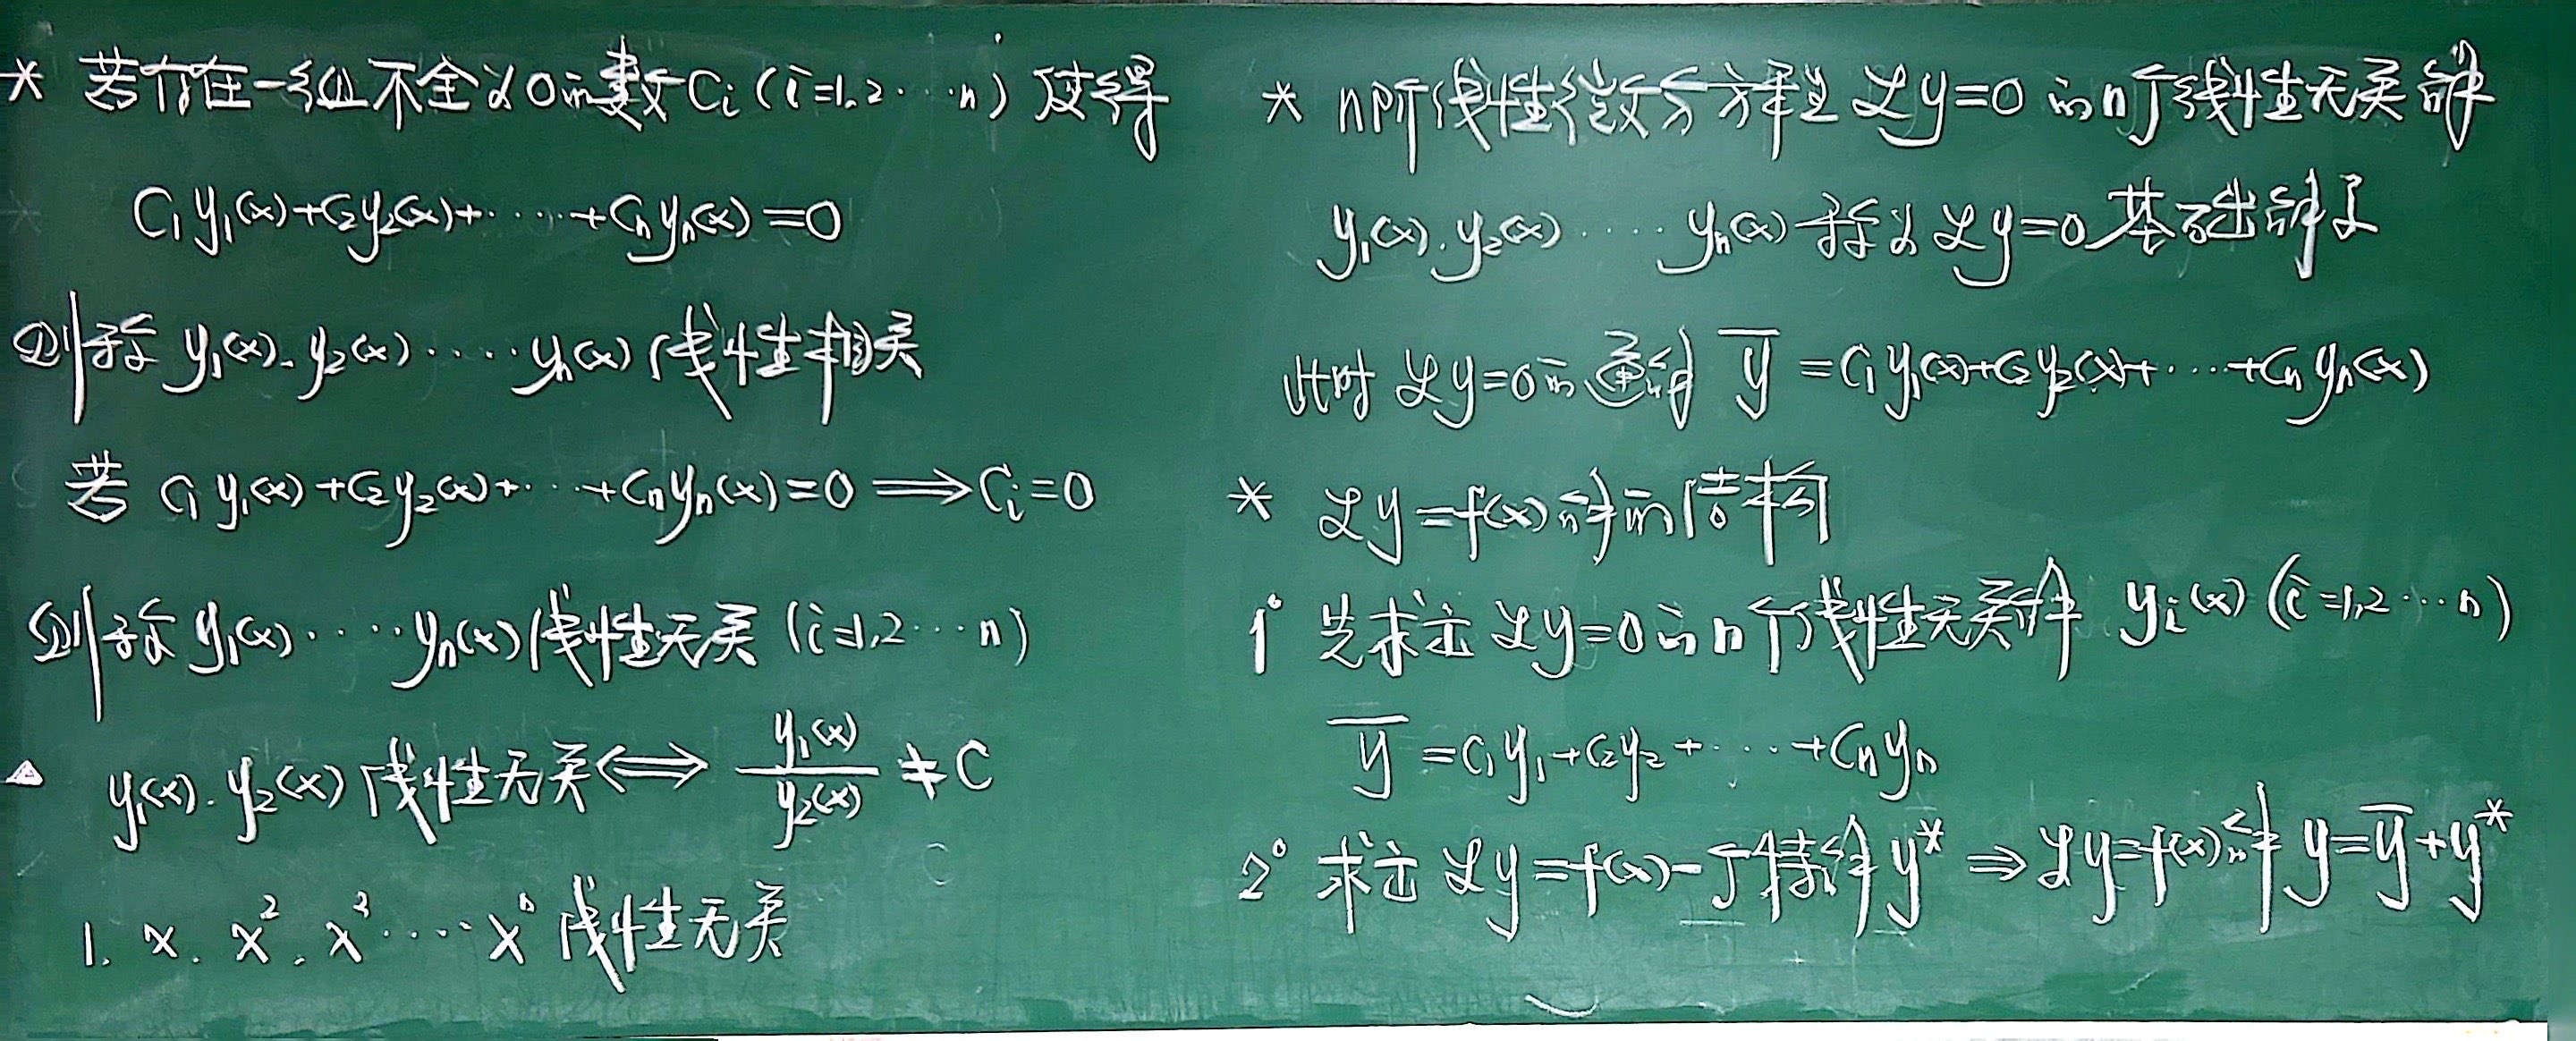 * 若存在一组不全为0的数Cᵢ(i=1,2⋯n)使得
C₁y₁(x)+C₂y₂(x)+⋯⋯+Cₙyₙ(x)=0
则称 y₁(x).y₂(x)⋯⋯yₙ(x)线性相关
若 C₁y₁(x)+C₂y₂(x)+⋯⋯+Cₙyₙ(x)=0⟹Cᵢ=0
则称y₁(x)⋯⋯yₙ(x)线性无关(i=1,2⋯n)
△ y₁(x).y₂(x)线性无关⟺ y₁(x)/y₂(x) ≠C
1. x. x². x³⋯⋯xⁿ 线性无关
* n阶线性微分方程 ℒy=0的n个线性无关解
y₁(x).y₂(x)⋯⋯yₙ(x)称为ℒy=0基础解系
此时 ℒy=0的通解 y̅ =C₁y₁(x)+C₂y₂(x)+⋯⋯+Cₙyₙ(x)
* ℒy=f(x)解的结构
1° 先求出ℒy=0的n个线性无关解 yᵢ(x)(i=1,2⋯n)
y̅ =C₁y₁+C₂y₂+⋯⋯+Cₙyₙ
2° 求出ℒy=f(x)一个特解y* ⇒ℒy=f(x)解 y=y̅+y*